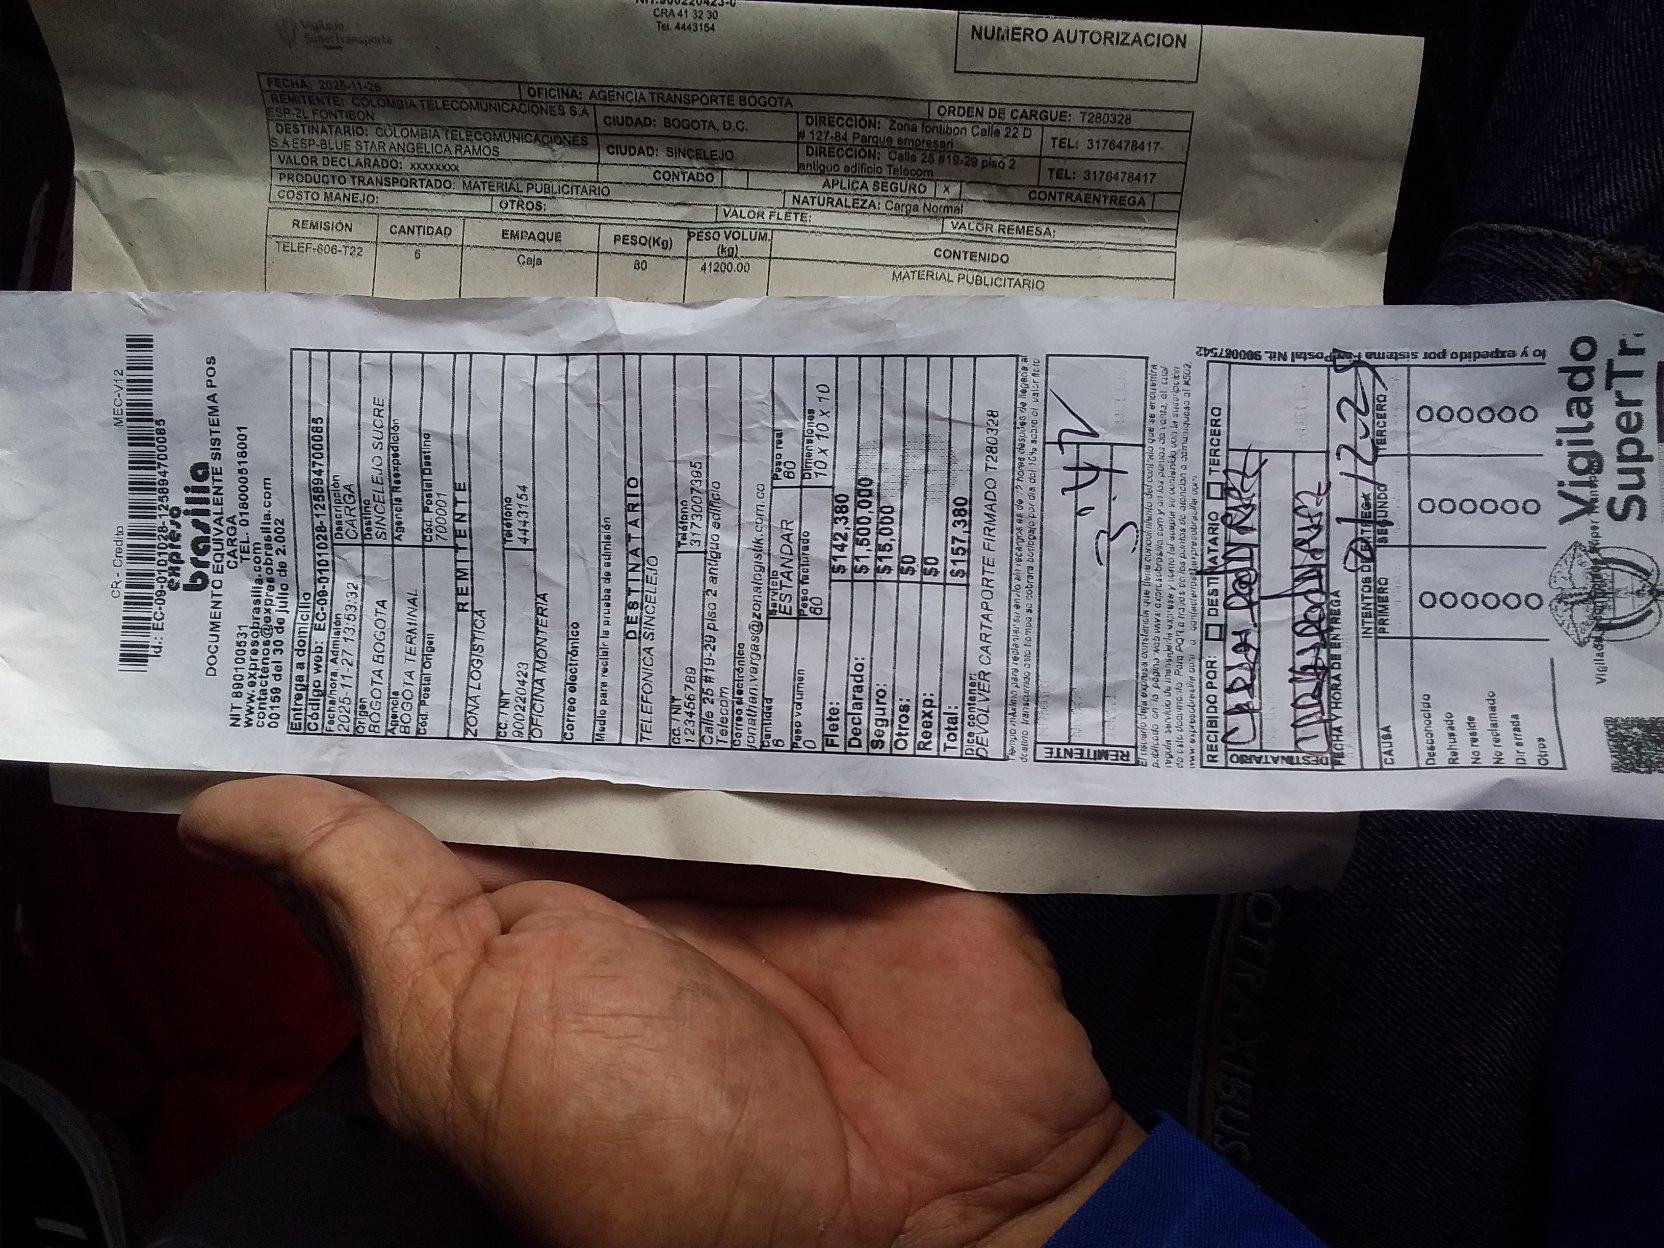 Vigilado
SuperTransporte
NIT.900220423-0
CRA 41 32 30
Tel. 4443154
NUMERO AUTORIZACION
FECHA: 2025-11-26
OFICINA: AGENCIA TRANSPORTE BOGOTA
ORDEN DE CARGUE: T280328
REMITENTE: COLOMBIA TELECOMUNICACIONES S.A
ESP-ZL FONTIBON
CIUDAD: BOGOTA, D.C.
DIRECCIÓN: Zona fontibon Calle 22 D
# 127-84 Parque empresari
TEL: 3176478417
DESTINATARIO: COLOMBIA TELECOMUNICACIONES
S.A ESP-BLUE STAR ANGELICA RAMOS
CIUDAD: SINCELEJO
DIRECCIÓN: Calle 25 #19-29 piso 2
antiguo edificio Telecom
TEL: 3176478417
VALOR DECLARADO: xxxxxxxx
CONTADO
APLICA SEGURO X
CONTRAENTREGA
PRODUCTO TRANSPORTADO: MATERIAL PUBLICITARIO
NATURALEZA: Carga Normal
COSTO MANEJO:
OTROS:
VALOR FLETE:
VALOR REMESA:
REMISIÓN CANTIDAD EMPAQUE PESO(Kg) PESO VOLUM. (kg) CONTENIDO
TELEF-606-T22 6 Caja 80 41200.00 MATERIAL PUBLICITARIO
CR - Credito MEC-V12
Id.: EC-09-0101028-125894700085
expreso
brasilia
DOCUMENTO EQUIVALENTE SISTEMA POS
CARGA
NIT 890100531 TEL. 018000518001
www.expresobrasilia.com
contactenos@expresobrasilia.com
00159 del 30 de julio de 2.002
Entrega a domicilio
Código web: EC-09-0101028-125894700085
Fecha/hora Admisión Descripción
2025-11-27 13:53:32 CARGA
Origen Destino
BOGOTA BOGOTA SINCELEJO SUCRE
Agencia Agencia Reexpedición
BOGOTA TERMINAL
Cód. Postal Origen Cód. Postal Destino
700001
REMITENTE
ZONA LOGISTICA
CC. / NIT Teléfono
900220423 4443154
OFICINA MONTERIA
Correo electrónico
Medio para recibir la prueba de admisión
DESTINATARIO
TELEFONICA SINCELEJO
CC. / NIT Teléfono
123456789 3173007395
Calle 25 #19-29 piso 2 antiguo edificio
Telecom
Correo electrónico
jonathan.vargas@zonalogistik.com.co
Cantidad Servicio Peso real
6 ESTANDAR 80
Peso volumen Peso facturado Dimensiones
0 80 10 x 10 x 10
Flete: $142,380
Declarado: $1,500,000
Seguro: $15,000
Otros: $0
Reexp: $0
Total: $157,380
Dice contener:
DEVOLVER CARTAPORTE FIRMADO T280328
REMITENTE
RECIBIDO POR: DESTINATARIO TERCERO
DESTINATARIO
FECHA Y HORA DE ENTREGA
INTENTOS DE ENTREGA
CAUSA PRIMERO SEGUNDO TERCERO
Desconocido
Rehusado
No reside
No reclamado
Dir errada
Otros
lo y expedido por sistema pos
Postal Nit. 900087542
Vigilado
SuperTr